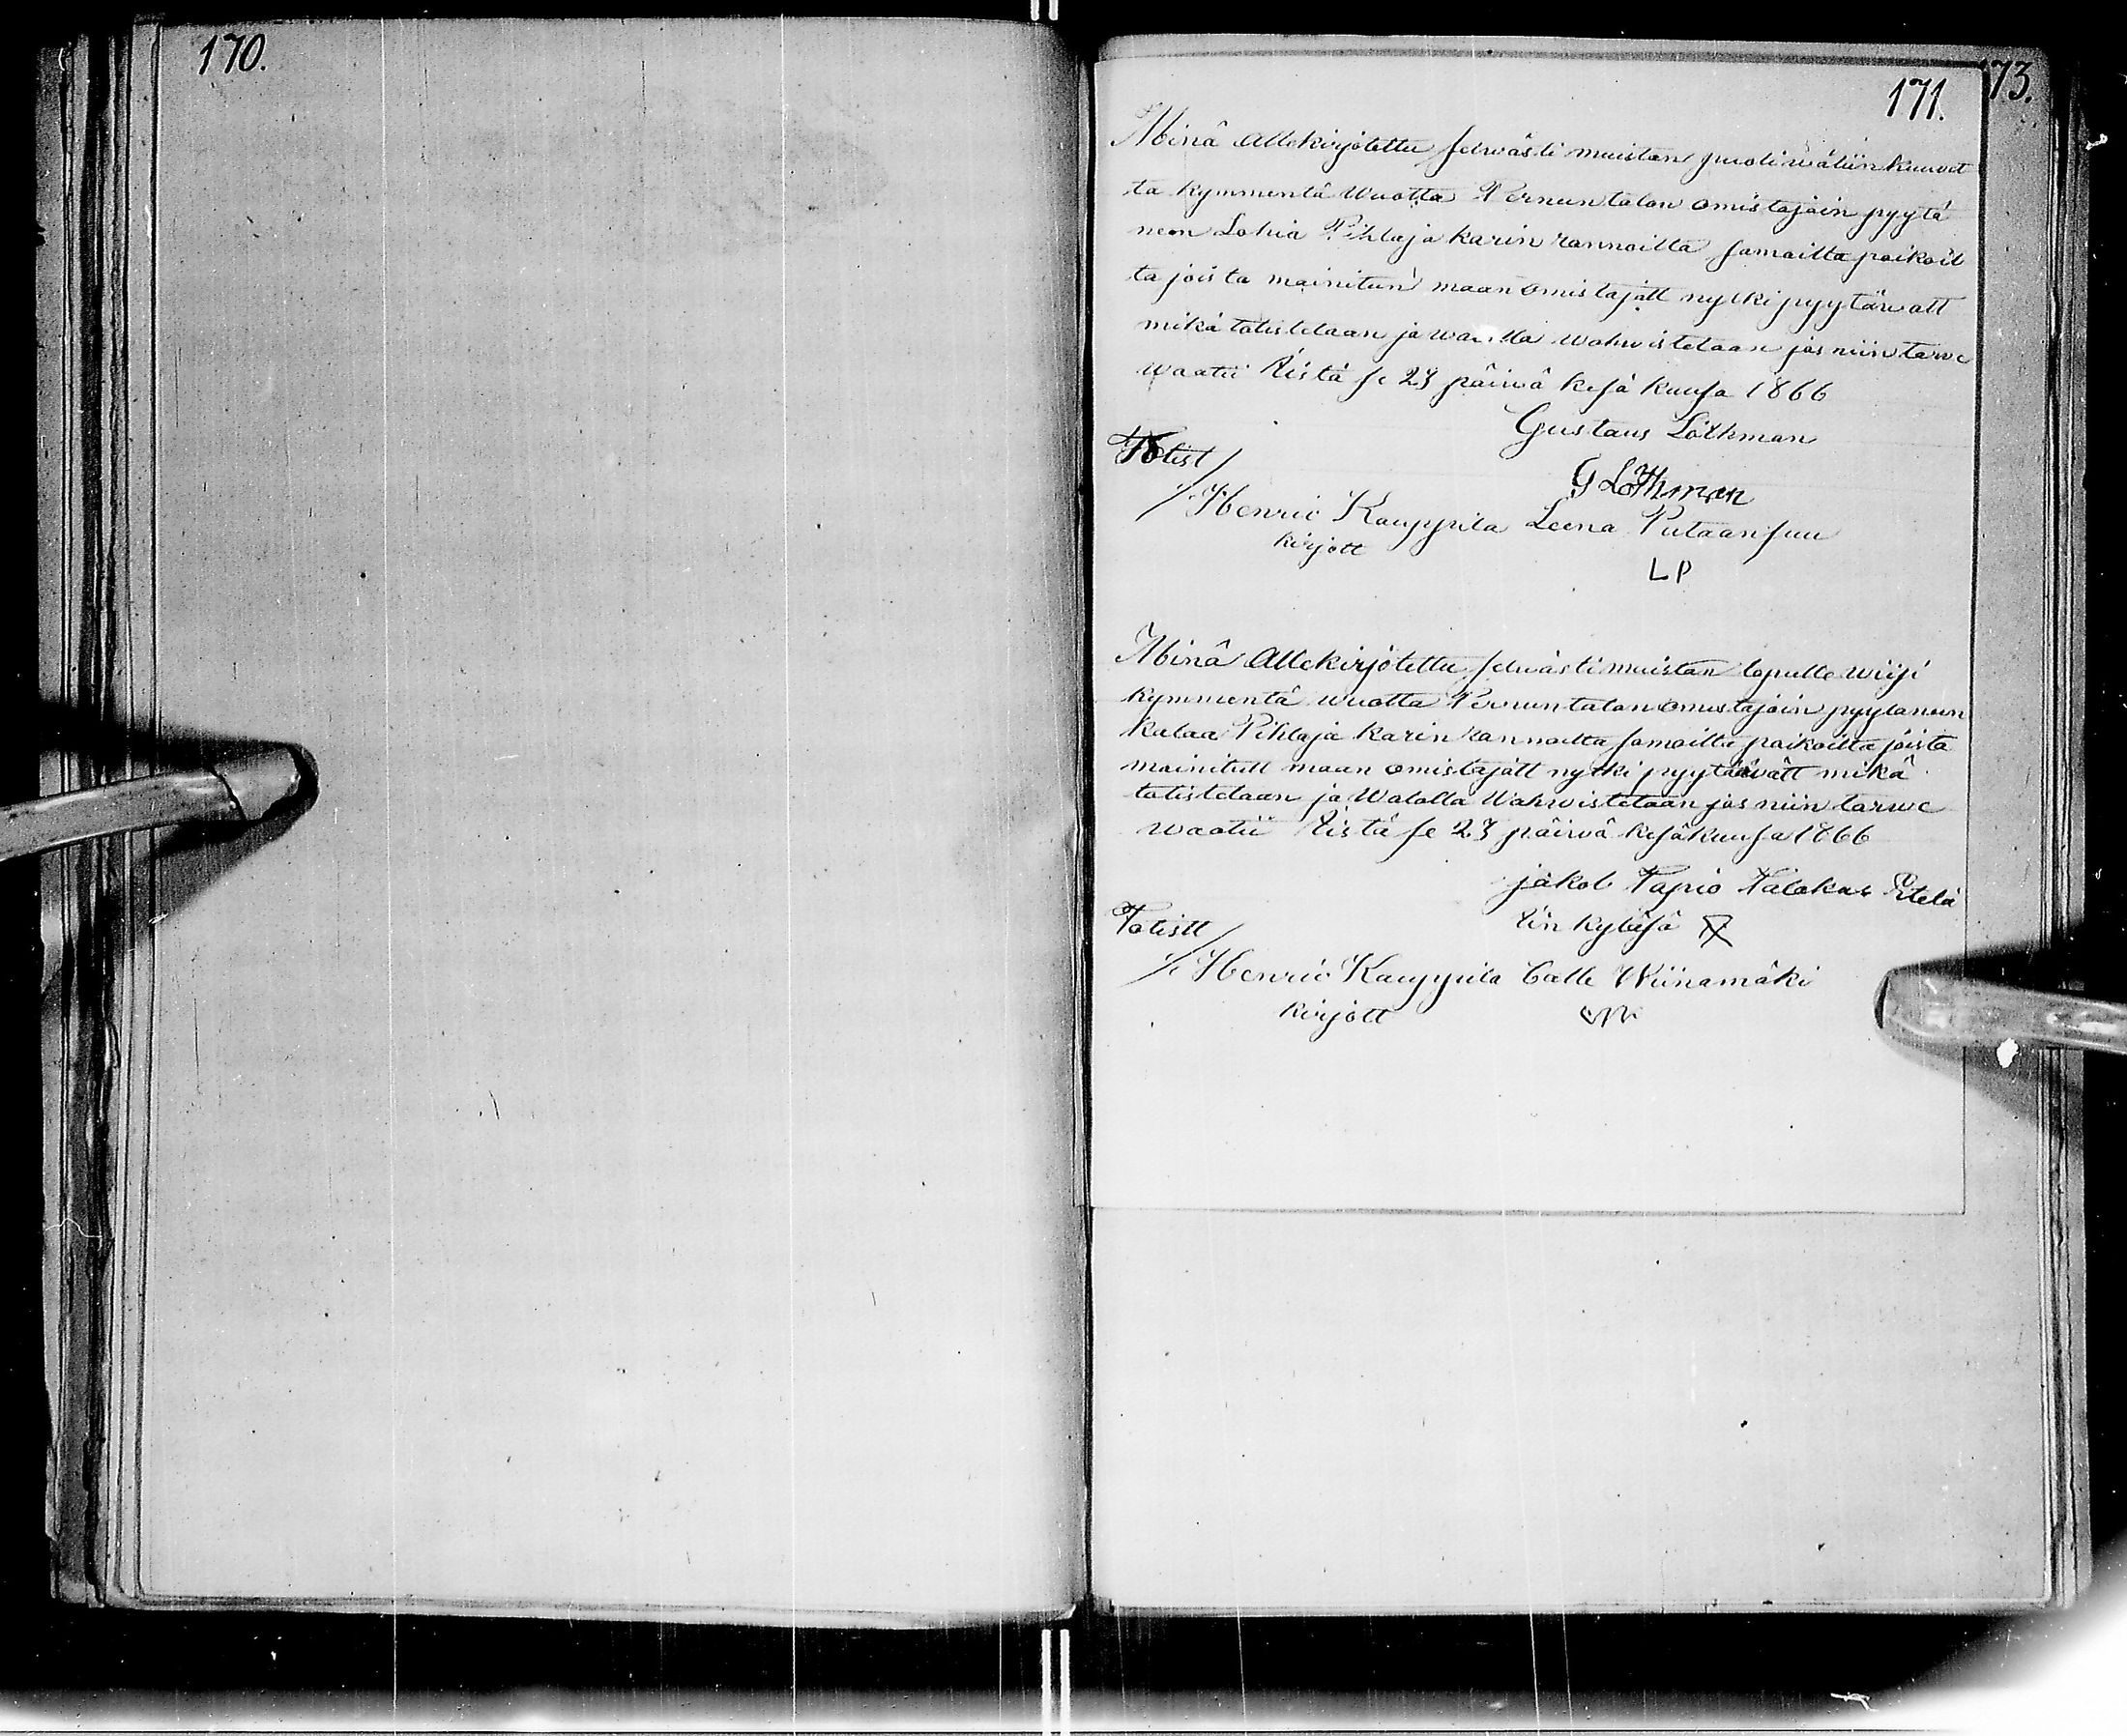 170.
171.
173.
Minä Allekirjotettu selwästi muistan puoliwäliin kuuvet
ta kymmentä wuotta Pernun talon omistajain pyytä
neen Lohia Pihlaja karin rannoilta samoilta paikoil
ta joista mainitun maan omistajatt nytki pyytäwätt
mikä totistetaan ja wahwistetaan jos niin tarwe
waatii Iistä se 23 päiwä kesä kuusa 1866
Gustaus Löthman
Totist
G Löthman
Henric Kauppila Leena Putaansuu
kirjott
L P
Minä Allekirjotettu selwästi muistan lopulle wiisi
kymmentä wuotta Pernun talon omistajain pyytäneen
kalaa Pihlaja karin rannoilta samoilta paikoilta joista
mainitutt maan omistajatt nytki pyytääwätt mikä
totistetaan ja Walalla Wahwistetaan jos niin tarwe
waatii Iistä se 23 päiwä kesäkuusa 1866
jakob Tapio Talokas Etelä
Iin kyläsä
Totistt
Henric Kauppila Calle Wiinamäki
kirjott